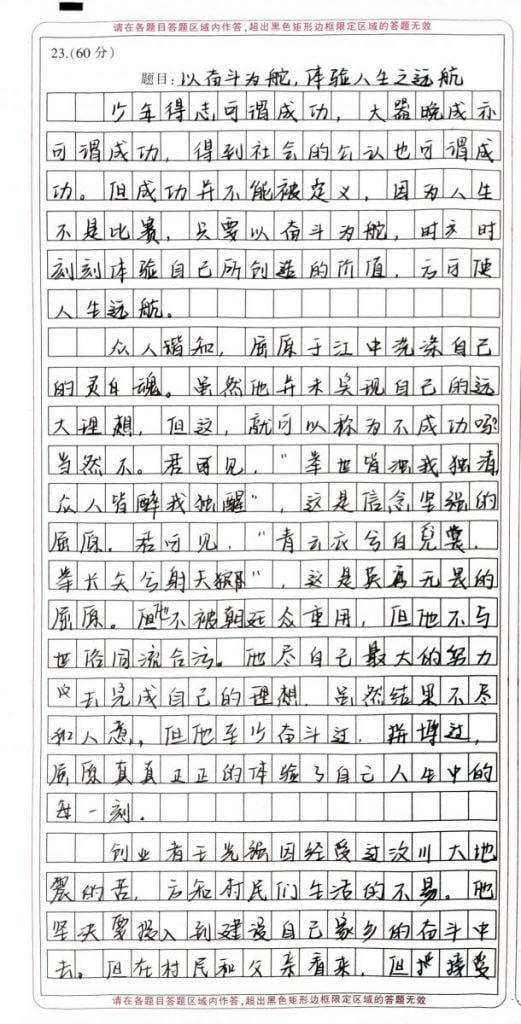 请在各题目答题区域内作答,超出黑色矩形边框限定区域的答题无效
23.(60分)
题目:以奋斗为舵,体验人生之远航
少年得志可谓成功，大器晚成亦
可谓成功，得到社会的公认也可谓成
功。但成功并不能被定义，因为人生
不是比赛，只要以奋斗为舵，时刻时
刻刻体验自己所创造的价值，方可使
人生远航。
众人皆知，屈原于江中洗涤自己
的灵魂。虽然他并未实现自己的远
大理想，但这，就可以称为不成功吗?
当然不。君可见，"举世皆浊我独清
众人皆醉我独醒"，这是信念坚强的
屈原。君可见，"青云衣兮白霓裳，
举长矢兮射天狼"，这是英勇无畏的
屈原。但他不被朝廷众重用，但他不与
世俗同流合污。他尽自己最大的努力
去完成自己的理想，虽然结果不尽
和人意，但他至少奋斗过，拼博过，
屈原真真正正的体验了自己人生中的
每一刻。
创业者王光强因经受过汶川大地
震的苦，方知村民们生活的不易。他
坚决要投入到建设自己家乡的奋斗中
去。但在村民和父亲看来，但接受
请在各题目答题区域内作答,超出黑色矩形边框限定区域的答题无效